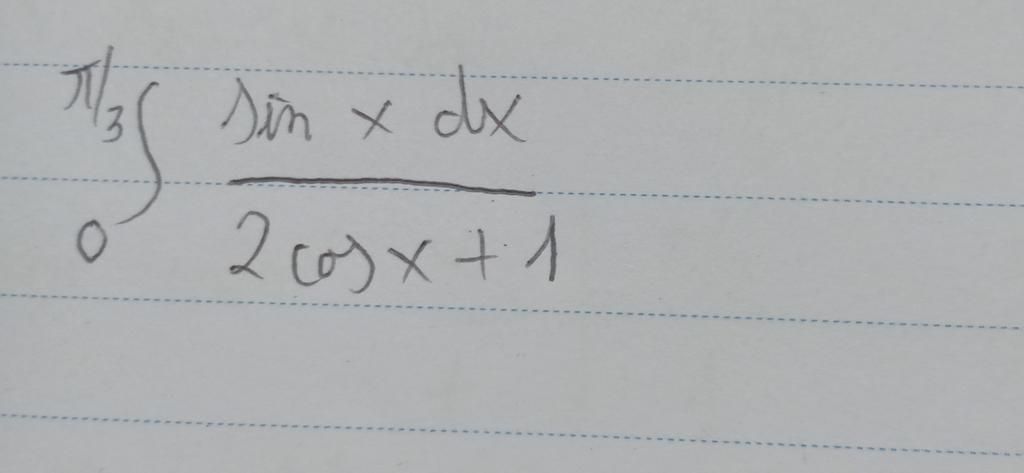 π/3 ∫ sin x dx
0 2 cos x + 1